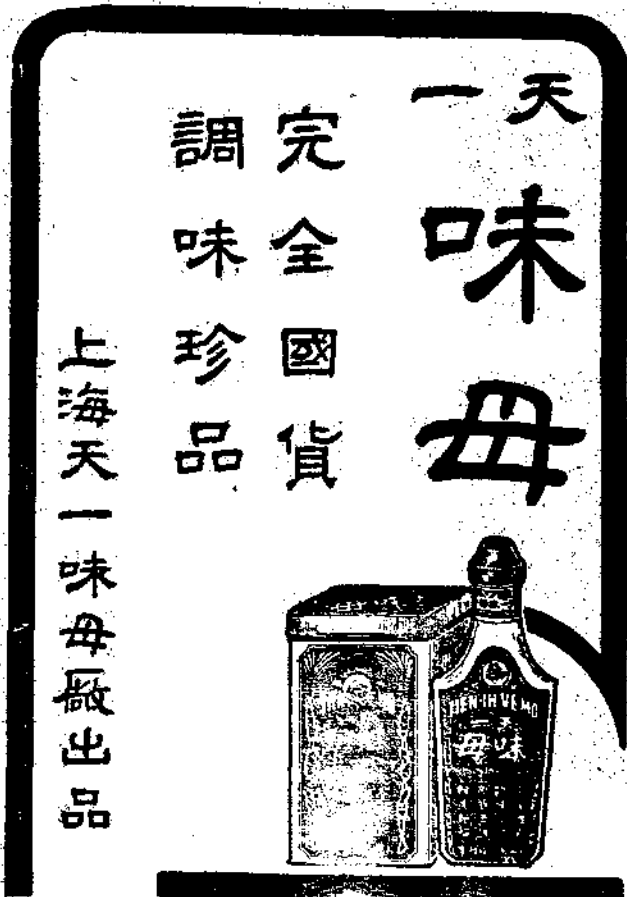 天一
味母
完全國貨
調味珍品
上海天一味母廠出品
TIEN-IH VE MO
天一
味母